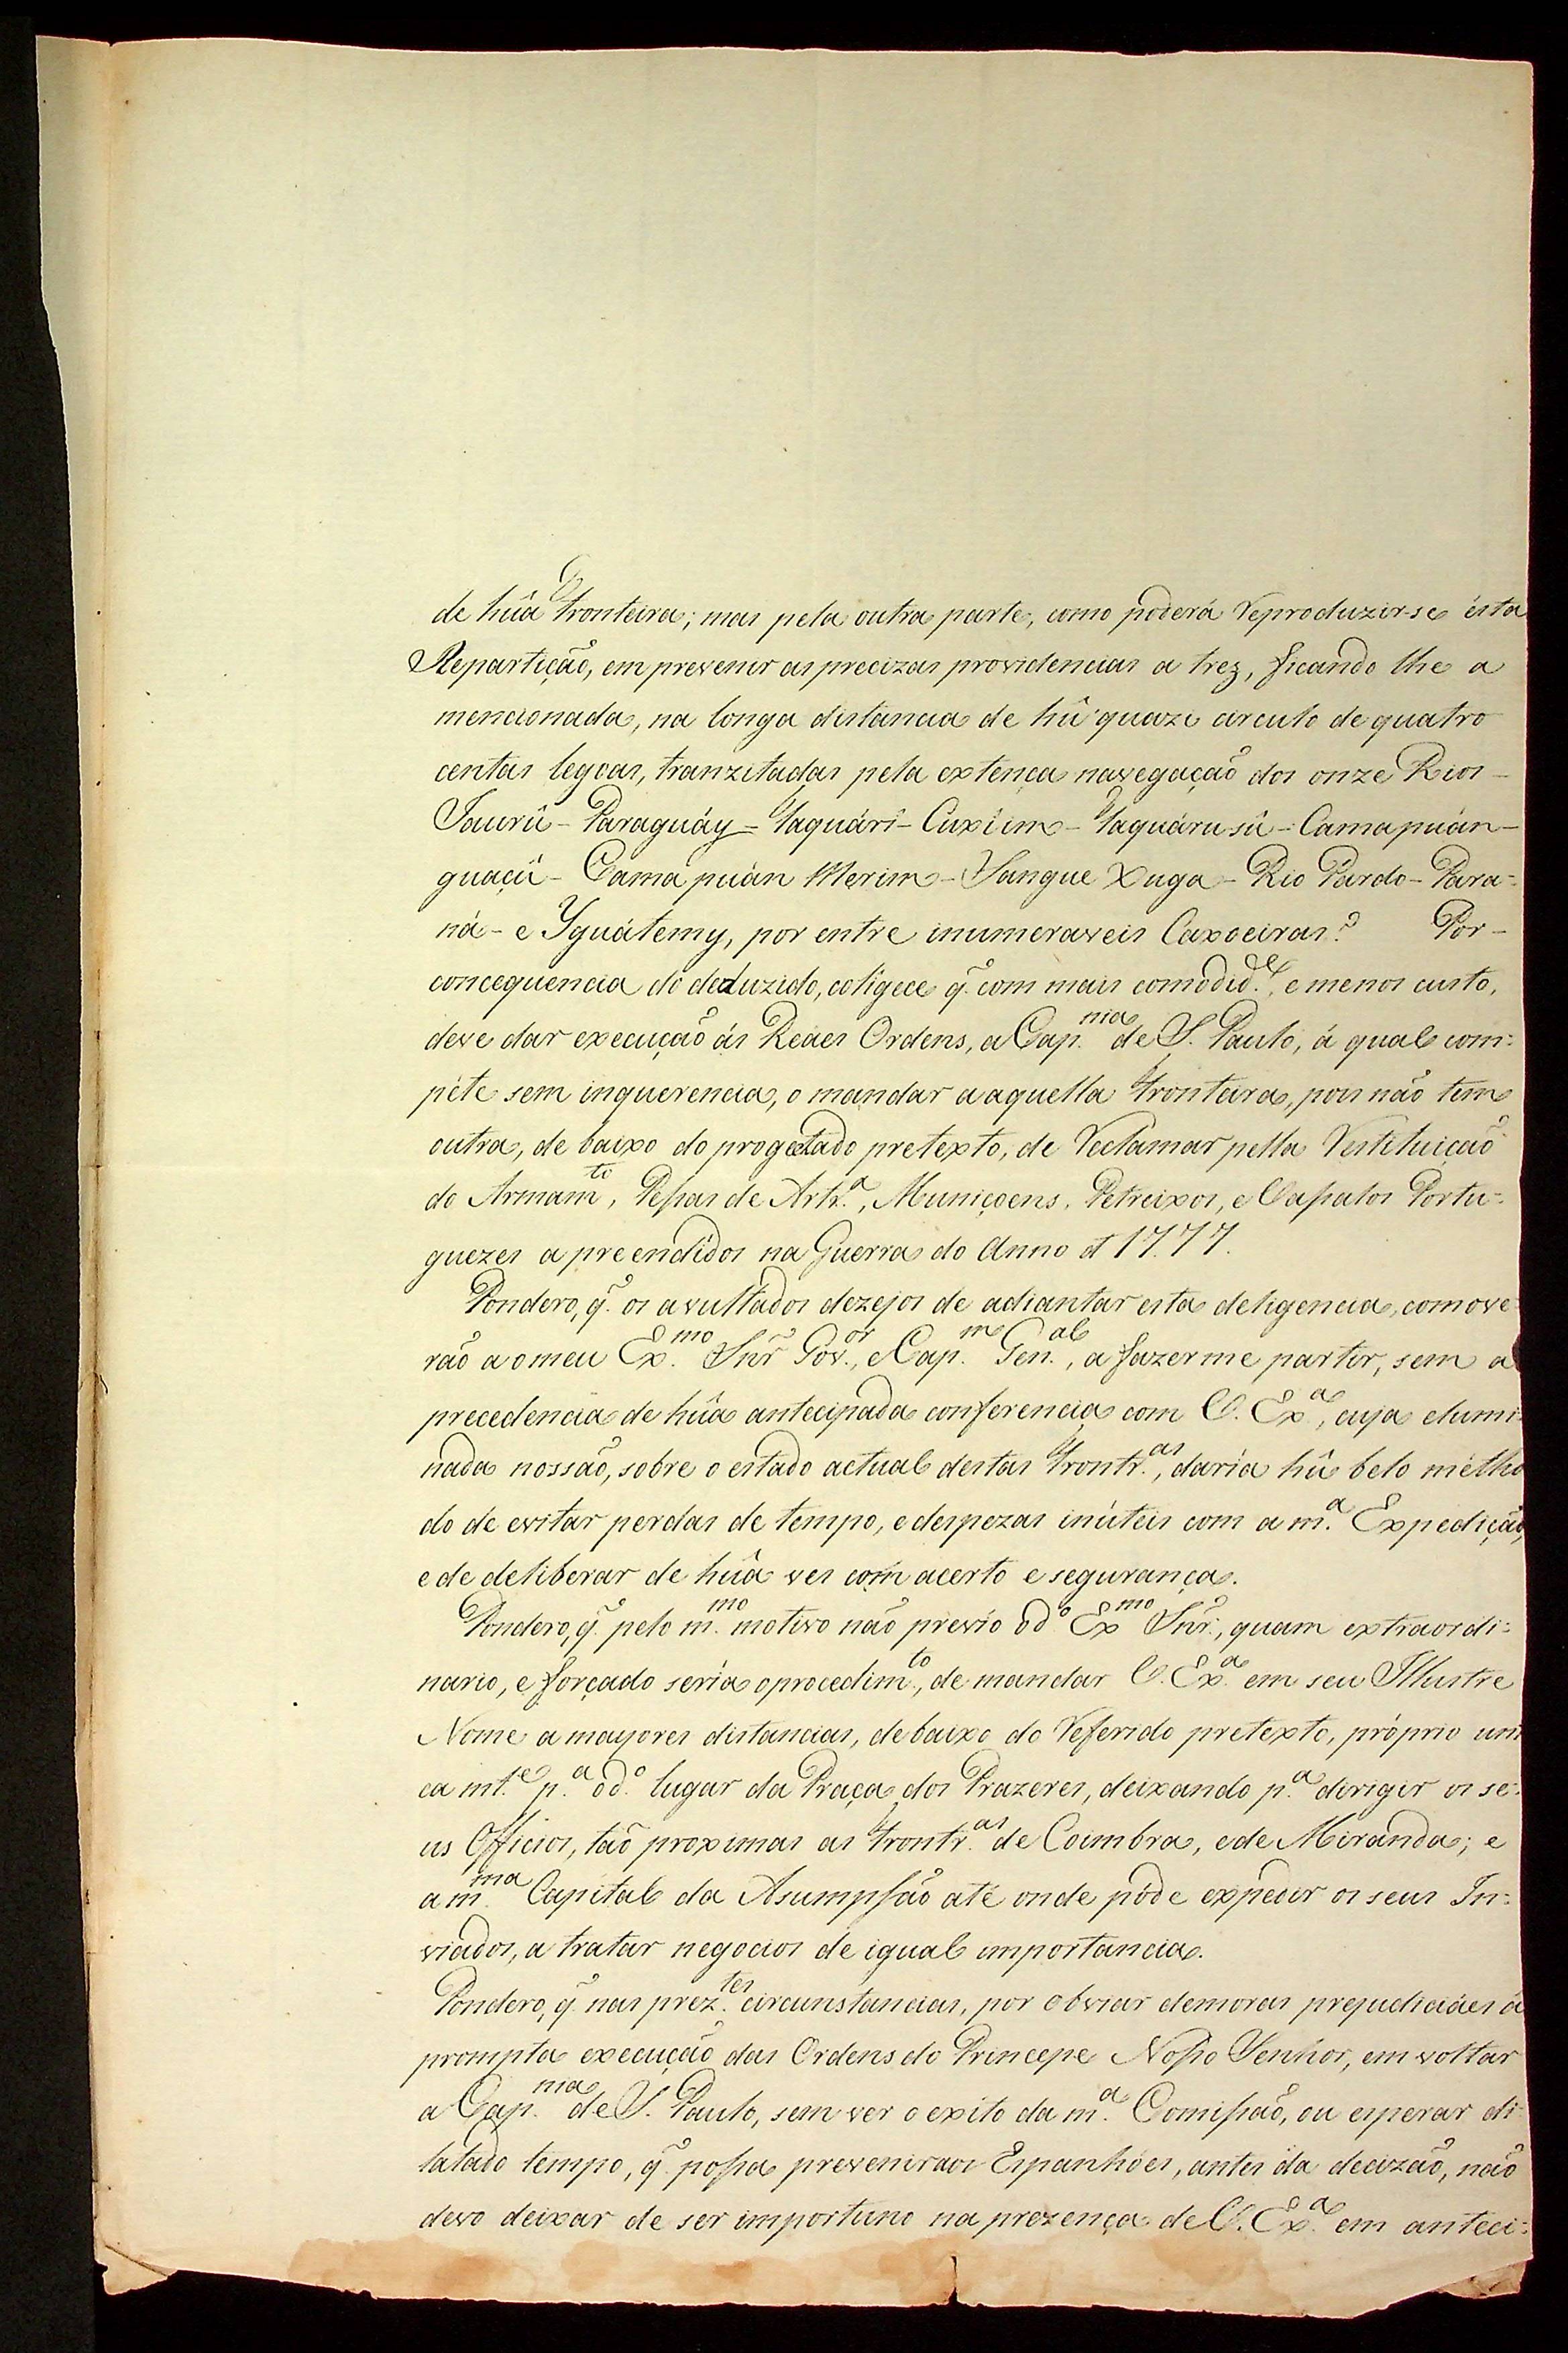 de hũa Fronteira; mas pela outra parte, como poderá reproduzir-se ésta
Repartição, em prevenir as precizas providencias a trez, ficando lhe a
mencionada, na longa distancia de hũ quazi circulo de quatro
centas legoas, tranzitadas pela extença navegação dos onze Rios -
Jaurú - Paraguáy - Taquári - Cuxiim - Taquárusú - Camapuán -
guaçú - Camapuán Merim - Sangue Xuga - Rio Párdo - Para=
ná - e Yguátemy, por entre inumeraveis Caxoeiras? Por -
concequencia do deduzido, coligece q̃ com mais comodid.e, e menos custo,
deve dar execução ás Reáes Ordens, a Cap.nia de S. Paulo, á qual com=
péte sem inquerencia, o mandar a aquella Fronteira, pois não tem
outra, de baixo do progectado pretexto, de reclamar pella restituição
do Armam.to, Pessas de Artr.a, Muniçoens, Petreixos, e Vassalos Portu=
guezes apreendidos na Guerra do Anno d 1777.
Pondero, q̃ os avultados dezejos de adiantar esta deligencia, comove
rão ao meu Ex.mo Snr̃ Gov.or, e Cap.m Gen.al, a fazerme partir, sem a
precedencia de hũa antecipada conferencia com V. Ex.a, cuja elumi=
nada nossão, sobre o estado actual destas Frontr.as, daría hũ belo métho
do de evitar perdas de tempo, e despezas inúteis com a m.a Expedição,
e de deliberar de hũa ves com acerto e segurança.
Pondero, q̃ pelo m.mo motivo não previo o d.o Ex.mo Snr̃, quam extraordi=
nario, e forçado sería o procedim.to, de mandar V. Ex.a em seu Illustre
Nome a mayores distancias, debaixo do referido pretexto, próprio uni
ca mt.e p.a o d.o lugar da Praça dos Prazeres, deixando p.a deriger os se=
us Officios, tão proximas as Frontr.as de Coimbra, e de Miranda; e
a m.ma Capital da Asumpsão até onde póde expedir os seus In=
viados, a tratar negocios de igual importancia.
Pondero, q̃ nas prez.tes circunstancias, por obviar demoras prejudiciáes á
prompta execução das Ordens do Princepe Nosso Senhor, em voltar
a Cap.nia de S. Paulo, sem ver o exito da m.a Comissão, ou esperar di=
latado tempo, q̃ possa prevenir aos Espanhóes, antes da decizão, não
devo deixar de ser importuno na prezença de V. Ex.a em anteci=